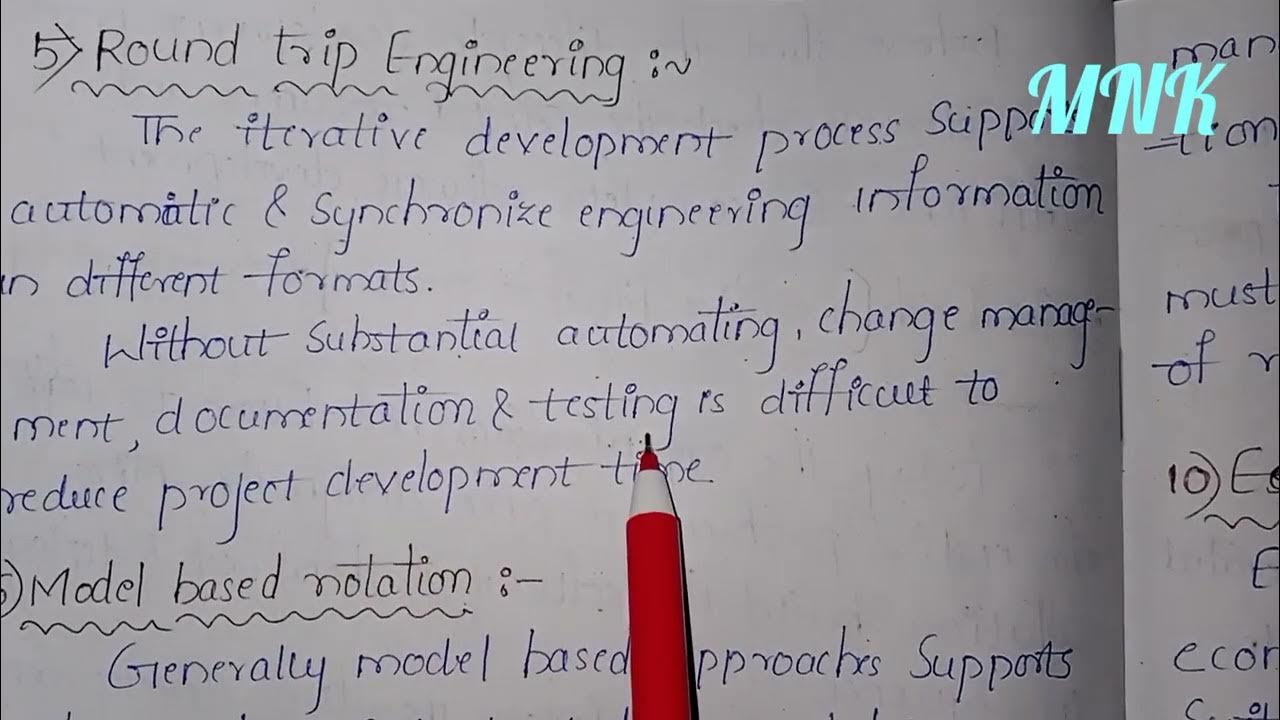 5) Round trip Engineering :~
The iterative development process Supports
automatic & Synchronize engineering information
in different formats.
Without substantial automating, change manage-
ment, documentation & testing is difficult to
reduce project development time
Model based notation :-
Generally model based approaches Supports
MNK
man
=tion
must
of
10)